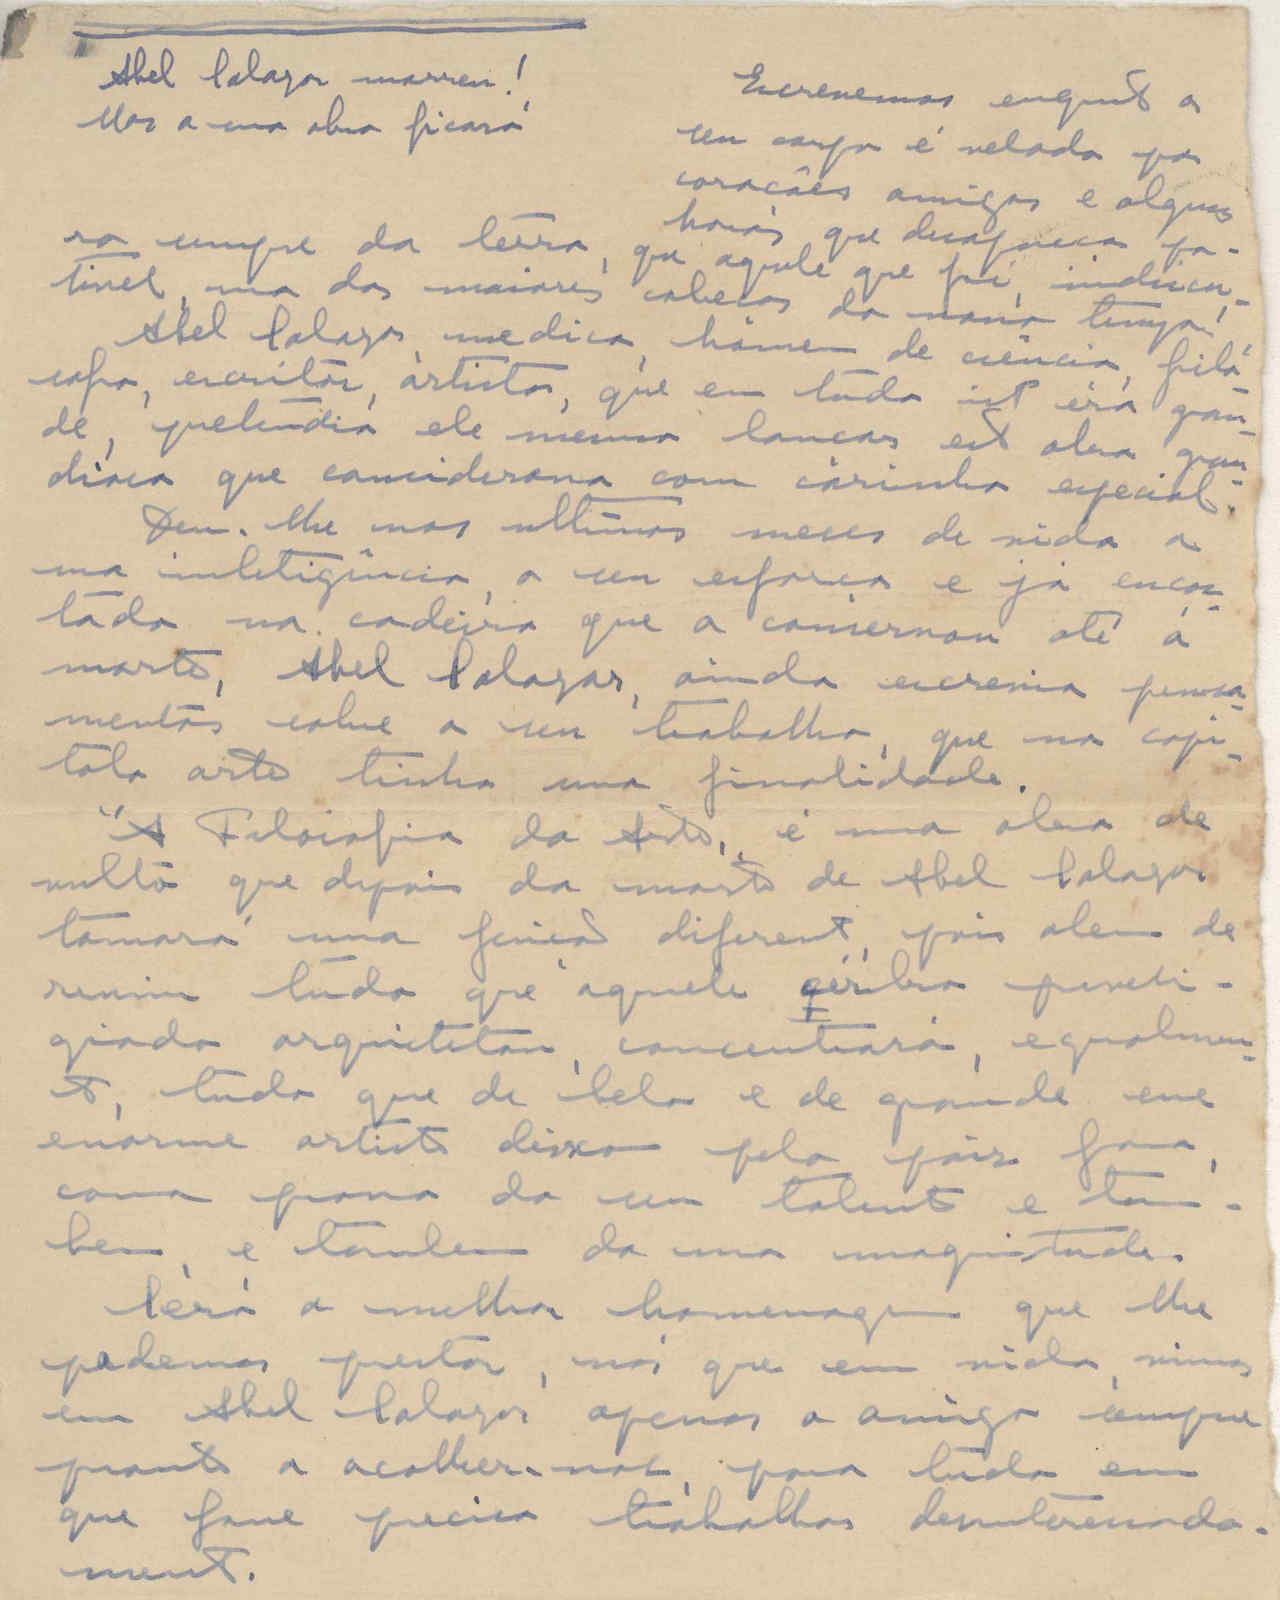 Abel Salazar morreu!
Mas a sua obra ficará
Escrevemos enquanto o
seu corpo é velado por
corações amigos e algumas
horas que desapareça pa-
ra sempre da terra, que aquele que foi, indiscu-
tivel, uma das maiores cabeças do nosso tempo!
Abel Salazar, medico, hómem de ciência, filó-
sofo, escritór, artista, que em tudo isto éra gran-
de, pretendia ele mesmo lançar esta obra gran-
diosa que considerava com carinho especial.
Deu-lhe nos ultimos meses de vida a
sua inteligência, o seu esforço e já encos-
tado na cadeira que o conservou até á
morte, Abel Salazar, ainda escrevia pensa-
mentos sobre o seu trabalho, que no capi-
tolo arte tinha uma finalidade.
"A Filosofia da Arte", é uma obra de
vulto que depois da morte de Abel Salazar
tomará uma feição diferente, pois alem de
reunir tudo que aquele cérebro presti-
giado arquitetou, concentrará, egualmen-
te, tudo que de belo e de grande esse
enorme artista deixou pelo paiz fora,
como prova do seu talento e tam-
bem, e tambem da sua magnitude.
Será a melhor homenagem que lhe
podemos prestar, nós que em vida, vimos
em Abel Salazar apenas o amigo sempre
pronto a acolher-nos, para tudo em
que fosse preciso trabalhar desinteressada-
mente.